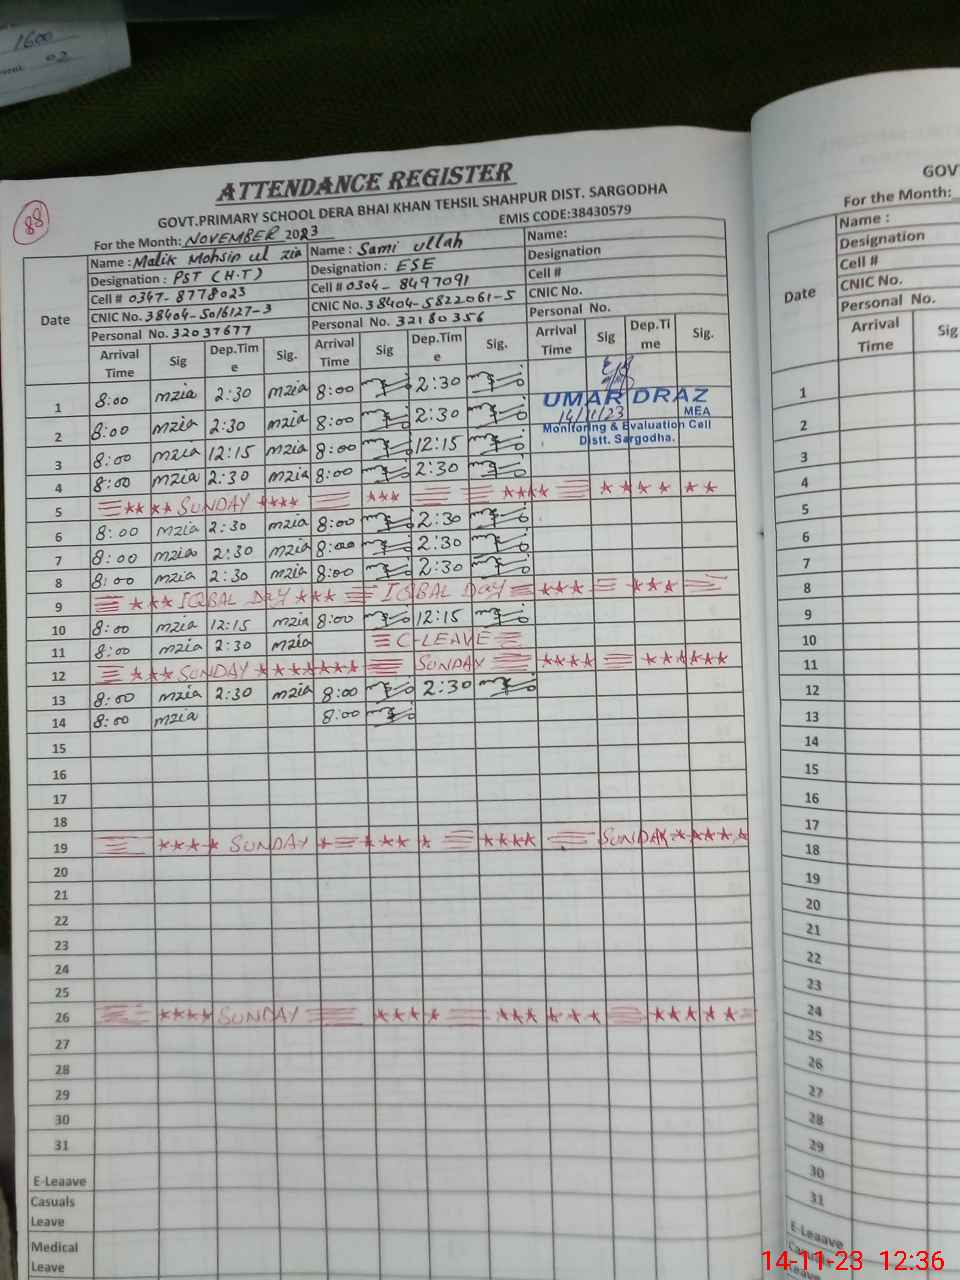 1600
02
88
ATTENDANCE REGISTER
GOVT.PRIMARY SCHOOL DERA BHAI KHAN TEHSIL SHAHPUR DIST. SARGODHA
For the Month: NOVEMBER 2023 EMIS CODE:38430579
Date Name : Malik Mohsin ul zia Name : Sami ullah Name:
Designation : PST (H.T) Designation : ESE Designation
Cell # 0347-8778023 Cell # 0304-8497091 Cell #
CNIC No. 38404-5016127-3 CNIC No. 38404-5822061-5 CNIC No.
Personal No. 32037677 Personal No. 32180356 Personal No.
Arrival Time Sig Dep.Time Sig. Arrival Time Sig Dep.Time Sig. Arrival Time Sig Dep.Time Sig.
1 8:00 mzia 2:30 mzia 8:00 2:30
UMAR DRAZ
14/11/23 MEA
Monitoring & Evaluation Cell
Distt. Sargodha.
2 8:00 mzia 2:30 mzia 8:00 2:30
3 8:00 mzia 12:15 mzia 8:00 12:15
4 8:00 mzia 2:30 mzia 8:00 2:30
5 **** SUNDAY **** *** **** **** **
6 8:00 mzia 2:30 mzia 8:00 2:30
7 8:00 mzia 2:30 mzia 8:00 2:30
8 8:00 mzia 2:30 mzia 8:00 2:30
9 *** IQBAL DAY *** IQBAL DAY *** ***
10 8:00 mzia 12:15 mzia 8:00 12:15
11 8:00 mzia 2:30 mzia C-LEAVE
12 *** SUNDAY ******* SUNDAY **** ******
13 8:00 mzia 2:30 mzia 8:00 2:30
14 8:00 mzia 8:00
15
16
17
18
19 **** SUNDAY * *** * **** SUNDAY *****
20
21
22
23
24
25
26 **** SUNDAY **** *** *** *****
27
28
29
30
31
E-Leaave
Casuals Leave
Medical Leave
GOV
For the Month:
Date Name :
Designation
Cell #
CNIC No.
Personal No.
Arrival Time Sig
1
2
3
4
5
6
7
8
9
10
11
12
13
14
15
16
17
18
19
20
21
22
23
24
25
26
27
28
29
30
31
E-Leaave
14-11-23 12:36